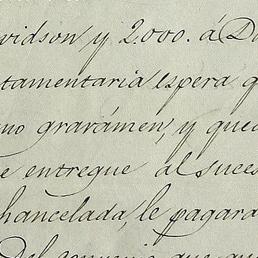 vidson, y 2.000. á Da
tamentaria espera q
mo gravámen, y qued
e entregue al suces
hancelada, le pagara
Del convenio que qu